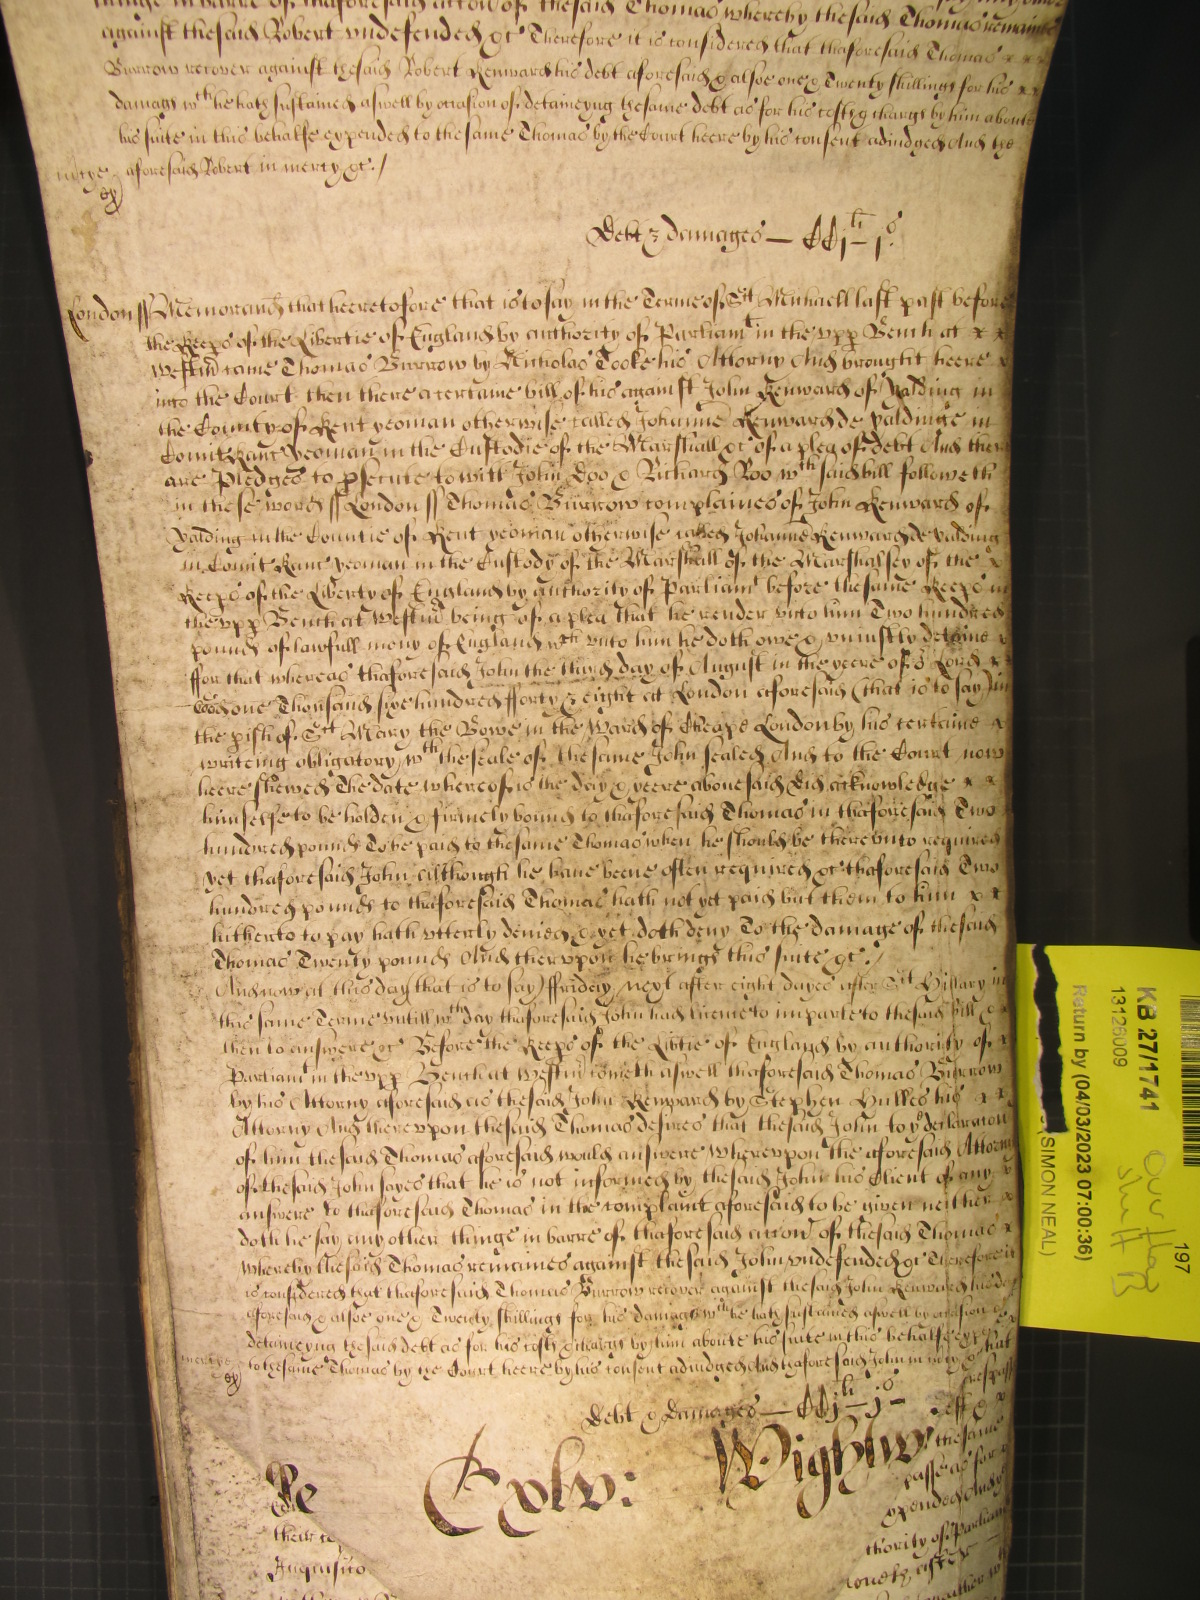 thinge in barre of thaforesaid accion of the said Thomas whereby the said Thomas remaines
against the said Robert vndefended &c Therefore it is considered that thaforesaid Thomas x x
Burrow recover against the said Robert Kenward his debt aforesaid & alsoe one & Twenty shillings for his x x
damags wth he hath sustained aswell by occasion of detaineyng the same debt as for his costs & chargs by him aboute
his suite in this behalfe expended to the same Thomas by the Court heere by his consent adiudged And the
aforesaid Robert in mercy &c./
Debt & damages — CCjli – js
London ss Memorand that heeretofore that is to say in the Terme of St Michaell last past before
the Keeps of the Libertie of England by authority of Parliamt in the vpp Bench at x x
Westm came Thomas Burrow by Nicholas Cooke his Attorny And brought heere x
into the Court then there a certaine bill of his against John Kenward of Yalding in
the County of Kent yeoman otherwise called Johanne Kenward de Yaldinge in
Comit Kanc yeoman in the Custodie of the Marshall &c of a plea of debt And there
are Pledges to psecute to witt John Doo & Richard Roo wch said bill followeth
in these words ss London ss Thomas Burrow complaines of John Kenward of
Yalding in the Countie of Kent yeoman otherwise called Johanne Kenward de Yalding
in Comit Kanc yeoman in the Custody of the Marshall of the Marshalsey of the x
Keeps of the Liberty of England by authority of Parliamt before the same Keeps in
the vpp Bench at Westm being of a plea that he render vnto him Two hundred
pounds of lawfull mony of England wch vnto him he doth owe & vniustly detaine x
ffor that whereas thaforesaid John the third day of August in the yeere of or Lord x x
one Thousand sixe hundred fforty & eight at London aforesaid (that is to say) in
the pish of St Mary the Bowe in the Ward of Cheape London by his certaine x
writeing obligatory wth the seale of the same John sealed And to the Court now
heere shewed The date whereof is the day & yeere abouesaid did acknowledge x x
himselfe to be holden & firmely bound to thaforesaid Thomas in thaforesaid Two
hundred pounds To be paid to the same Thomas when he should be therevnto required
yet thaforesaid John Although he haue beene often required &c thaforesaid Two
hundred pounds to thaforesaid Thomas hath not yet paid but them to him x x
hitherto to pay hath vtterly denied & yet doth deny To the damage of the said
Thomas Twenty pounds And therevpon he brings this suite &c./
And now at this day (that is to say) ffriday next after eight dayes after St Hillary in
this same Terme vntill wch day thaforesaid John had licence to imparle to the said bill &
then to answere &c Before the Keeps of the Libtie of England by authority of x
Parliamt in the vpp Bench at Westm cometh aswell thaforesaid Thomas Burrow
by his Attorny aforesaid as the said John Kenward by Stephen Hulles his x x
Attorny And therevpon the said Thomas desires that the said John to ye declaracon
of him the said Thomas aforesaid would answere Wherevpon the aforesaid Attorny
of the said John sayes that he is not informed by the said John his Client of any x
answere to thaforesaid Thomas in the complaint aforesaid to be given neither x
doth he say any other thinge in barre of thaforesaid accon of the said Thomas x
whereby the said Thomas remaines against the said John vndefended &c Therefore it
is considered that thaforesaid Thomas Burrow recover against the said John Kenward his debt
aforesaid & alsoe one & Twenty shillings for his damags wch he hath sustained aswell by occasion of
detaineyng the said debt as for his costs & chargs by him aboute his suite in this behalfe expended
to the same Thomas by the Court heere by his consent adiudged And thaforesaid John in mcy &c
Debt & Damages — CCjli – js –
Cxlv:
Wightw
the same
passe as for
expended And
thority of Parliam
their
Augusti
KB 27/1741
13126009
Return by (04/03/2023 07:00:36)
(SIMON NEAL)
197